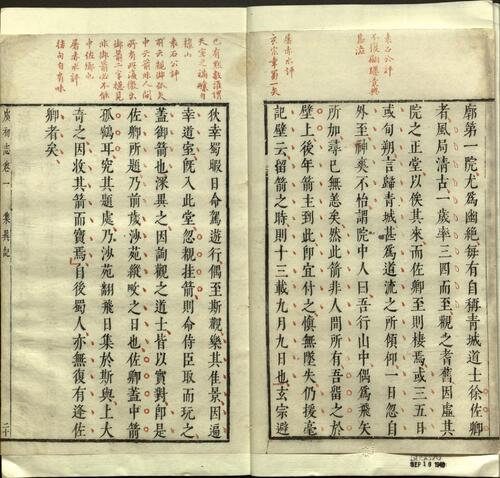 袁石公評
屠赤水評
廓第一院尤爲幽絕每有自稱青城道士徐佐卿
者風局清古一歲率三四而至觀之耆舊因虛其
院之正堂以俟其來而佐卿至則棲焉或三五日
或旬朔言歸青城甚爲道流之所傾仰一日忽自
外至神爽不怡謂院中人曰吾行山中偶爲飛矢
所加尋已無恙矣然此箭非人間所有吾留之於
壁上後年箭主到此卽宜付之慎無墜失仍援毫
記壁云留箭之時則十三載九月九日也玄宗避
SEP 18 19
天寶之禍釀自
袁石公評
前云親御弧矢
中云箭非人間
所有再後徵出
御箭二字總見
非御箭必不能
中佐卿也
屠赤水評
結句自有味
狄幸蜀暇日命駕遊行偶至斯觀樂其佳景因遍
幸道室旣入此堂忽覩挂箭則命侍臣取而玩之
蓋御箭也深異之因詢觀之道士皆以實對卽是
佐卿所題乃前歲沙苑縱畋之日也佐卿蓋中箭
孤鶴耳究其題處乃沙苑翻飛日集於斯與上大
奇之因收其箭而寶焉自後蜀人亦無復有逢佐
卿者矣
虞初志卷一 集異記 二十